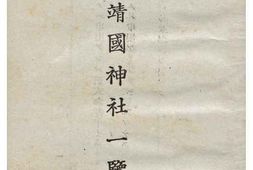 靖國神社一覽